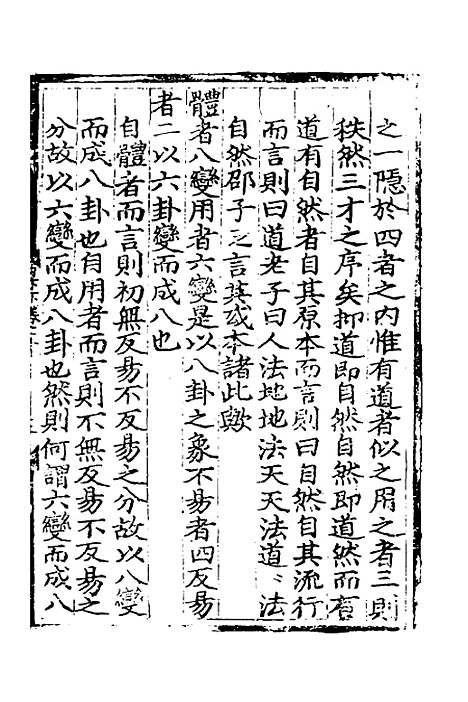 之一隱於四者之內惟有道者似之用之者三則
秩然三才之序矣抑道即自然自然即道然而有
道有自然者自其原本而言則曰自然自其流行
而言則曰道老子曰人法地地法天天法道〻法
自然邵子之言其或本諸此歟
體者八變用者六變是以八卦之象不易者四反易
者二以六卦變而成八也
自體者而言則初無反易不反易之分故以八變
而成八卦也自用者而言則不無反易不反易之
分故以六變而成八卦也然則何謂六變而成八